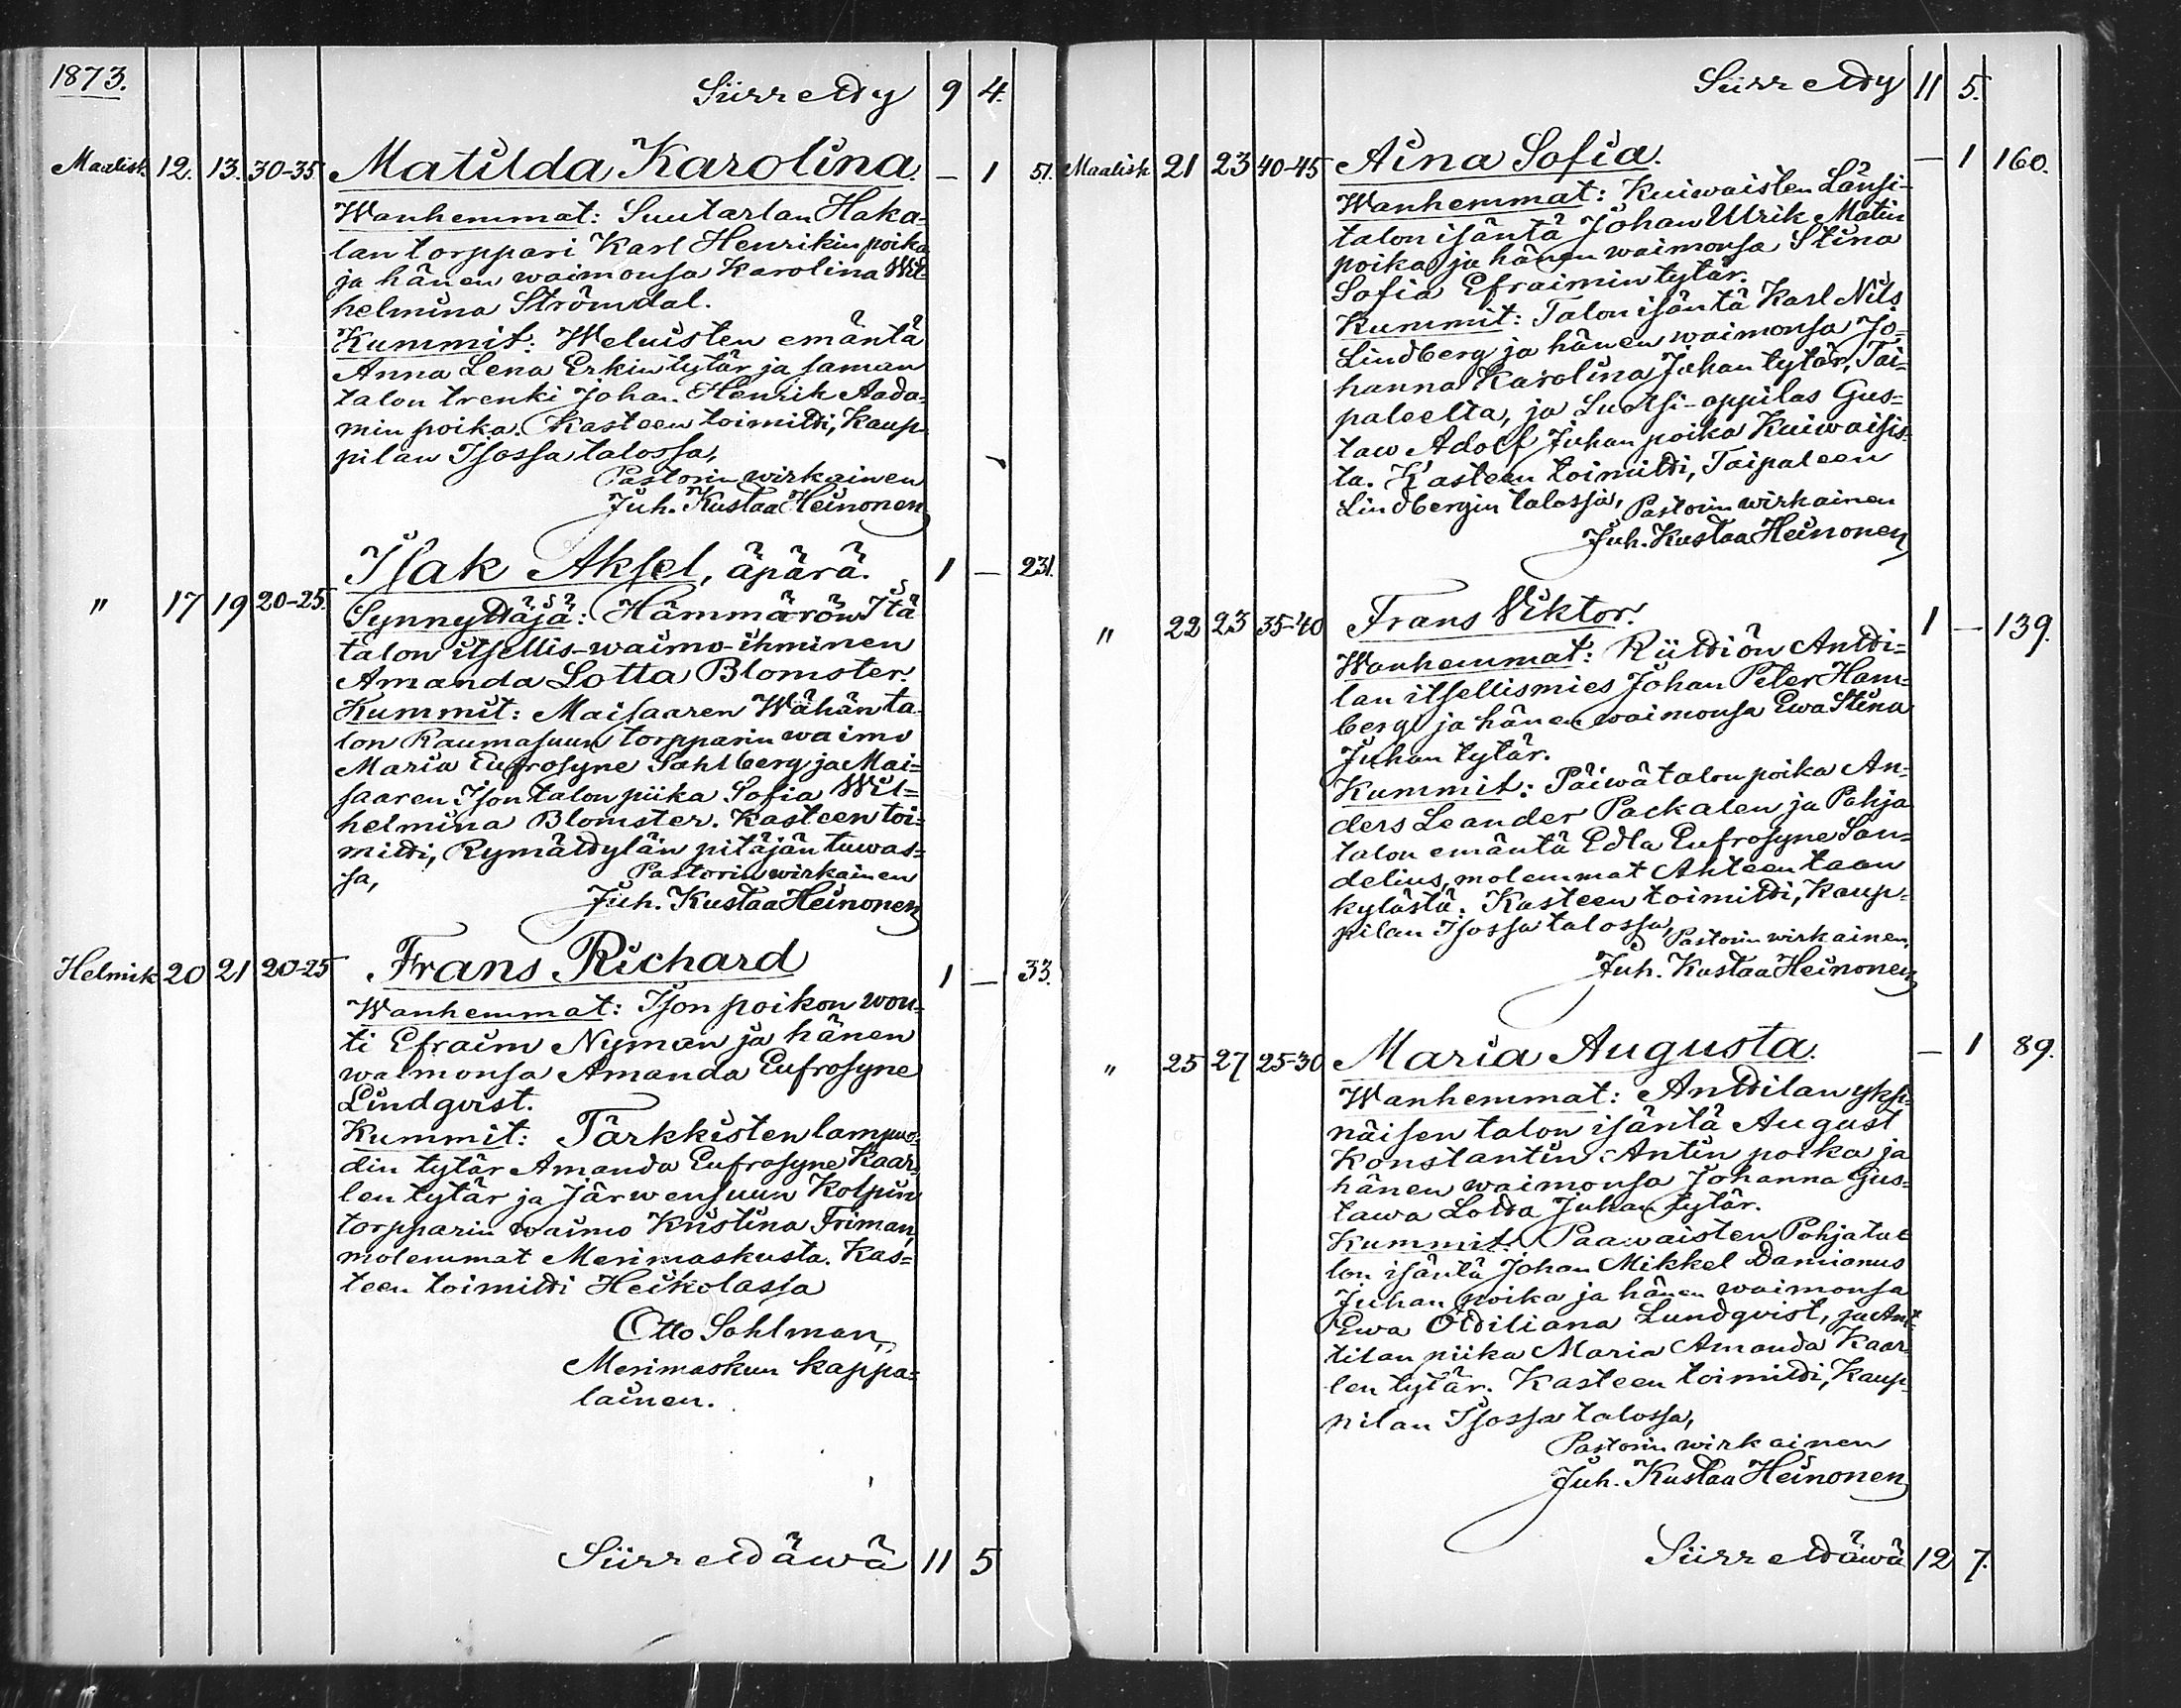 1873.
Siirretty 9 4.
Maalisk. 12. 13. 30-35 Matilda Karolina. — 1 51.
Wanhemmat: Suutarlan Haka-
lan torppari Karl Henrikin poika
ja hänen waimonsa Karolina Wil-
helmina Strömdal.
Kummit: Weluisten emäntä
Anna Lena Erkin tytär ja saman
talon trenki Johan Henrik Aada-
min poika. Kasteen toimitti, Kaup-
pilan Isossa talossa,
Pastorin wirkainen
Juh. Kustaa Heinonen
Isak Aksel, äpärä. 1 — 231.
" 17 19 20-25. Synnyttäjä: Hämmärön Itä
talon itsellis-waimo-ihminen
Amanda Lotta Blomster.
Kummit: Maisaaren Wähän ta-
lon Raumasuun torpparin waimo
Maria Eufrosyne Sahlberg ja Mai=
saaren Ison talon piika Sofia Wil=
helmina Blomster. Kasteen toi=
mitti, Rymättylän pitäjän tuwas=
sa,
Pastorin wirkainen
Juh. Kustaa Heinonen
Helmik 20 21 20-25 Frans Richard 1 — 33.
Wanhemmat: Ison poikon wou-
ti Efraim Nyman ja hänen
waimonsa Amanda Eufrosyne
Lindqvist.
Kummit: Tärkkisten lampuo-
din tytär Amanda Eufrosyne Kaar-
len tytär ja Järwensuun Kolpin
torpparin waimo Kristina Friman,
molemmat Merimaskusta. Kas=
teen toimitti Heikolassa
Otto Sahlman,
Merimaskun kappa=
lainen.
Siirrettäwä 11 5
Siirretty 11 5.
Maalisk 21 23 40-45 Aina Sofia. — 1 160.
Wanhemmat: Kuiwaisten Länsi-
talon isäntä Johan Ulrik Matin
poika ja hänen waimonsa Stina
Sofia Efraimin tytär.
Kummit: Talon isäntä Karl Nils
Lindberg ja hänen waimonsa Jo=
hanna Karolina Juhan tytär, Tai-
paleelta, ja Luotsi-oppilas Gus=
taw Adolf Juhan poika Kuiwaisis-
ta. Kasteen toimitti, Taipaleen
Lindbergin talossa, Pastorin wirkainen
Juh. Kustaa Heinonen
" 22 23 35-40 Frans Viktor. 1 — 139.
Wanhemmat: Riittiön Antti=
lan itsellismies Johan Peter Ham-
berg ja hänen waimonsa Ewa Stina
Juhan tytär.
Kummit: Päiwätalon poika An-
ders Leander Packalen ja Pohja
talon emäntä Edla Eufrosyne San=
delius, molemmat Ahteentaan
kylästä. Kasteen toimitti, Kaup-
pilan Isossa talossa,
Pastorin wirkainen.
Juh. Kustaa Heinonen
" 25 27 25-30 Maria Augusta. — 1 89.
Wanhemmat: Anttilan yksi-
näisen talon isäntä August
Konstantin Antin poika ja
hänen waimonsa Johanna Gus-
tawa Lotta Juhan tytär.
Kummit: Paawaisten Pohjata=
lon isäntä Johan Mikkel Damianus
Juhan poika ja hänen waimonsa
Ewa Ottiliana Lundqvist, ja Ant-
tilan piika Maria Amanda Kaar-
len tytär. Kasteen toimitti, Kaup-
pilan Isossa talossa,
Pastorin wirkainen
Juh. Kustaa Heinonen
Siirrettäwä 12 7.